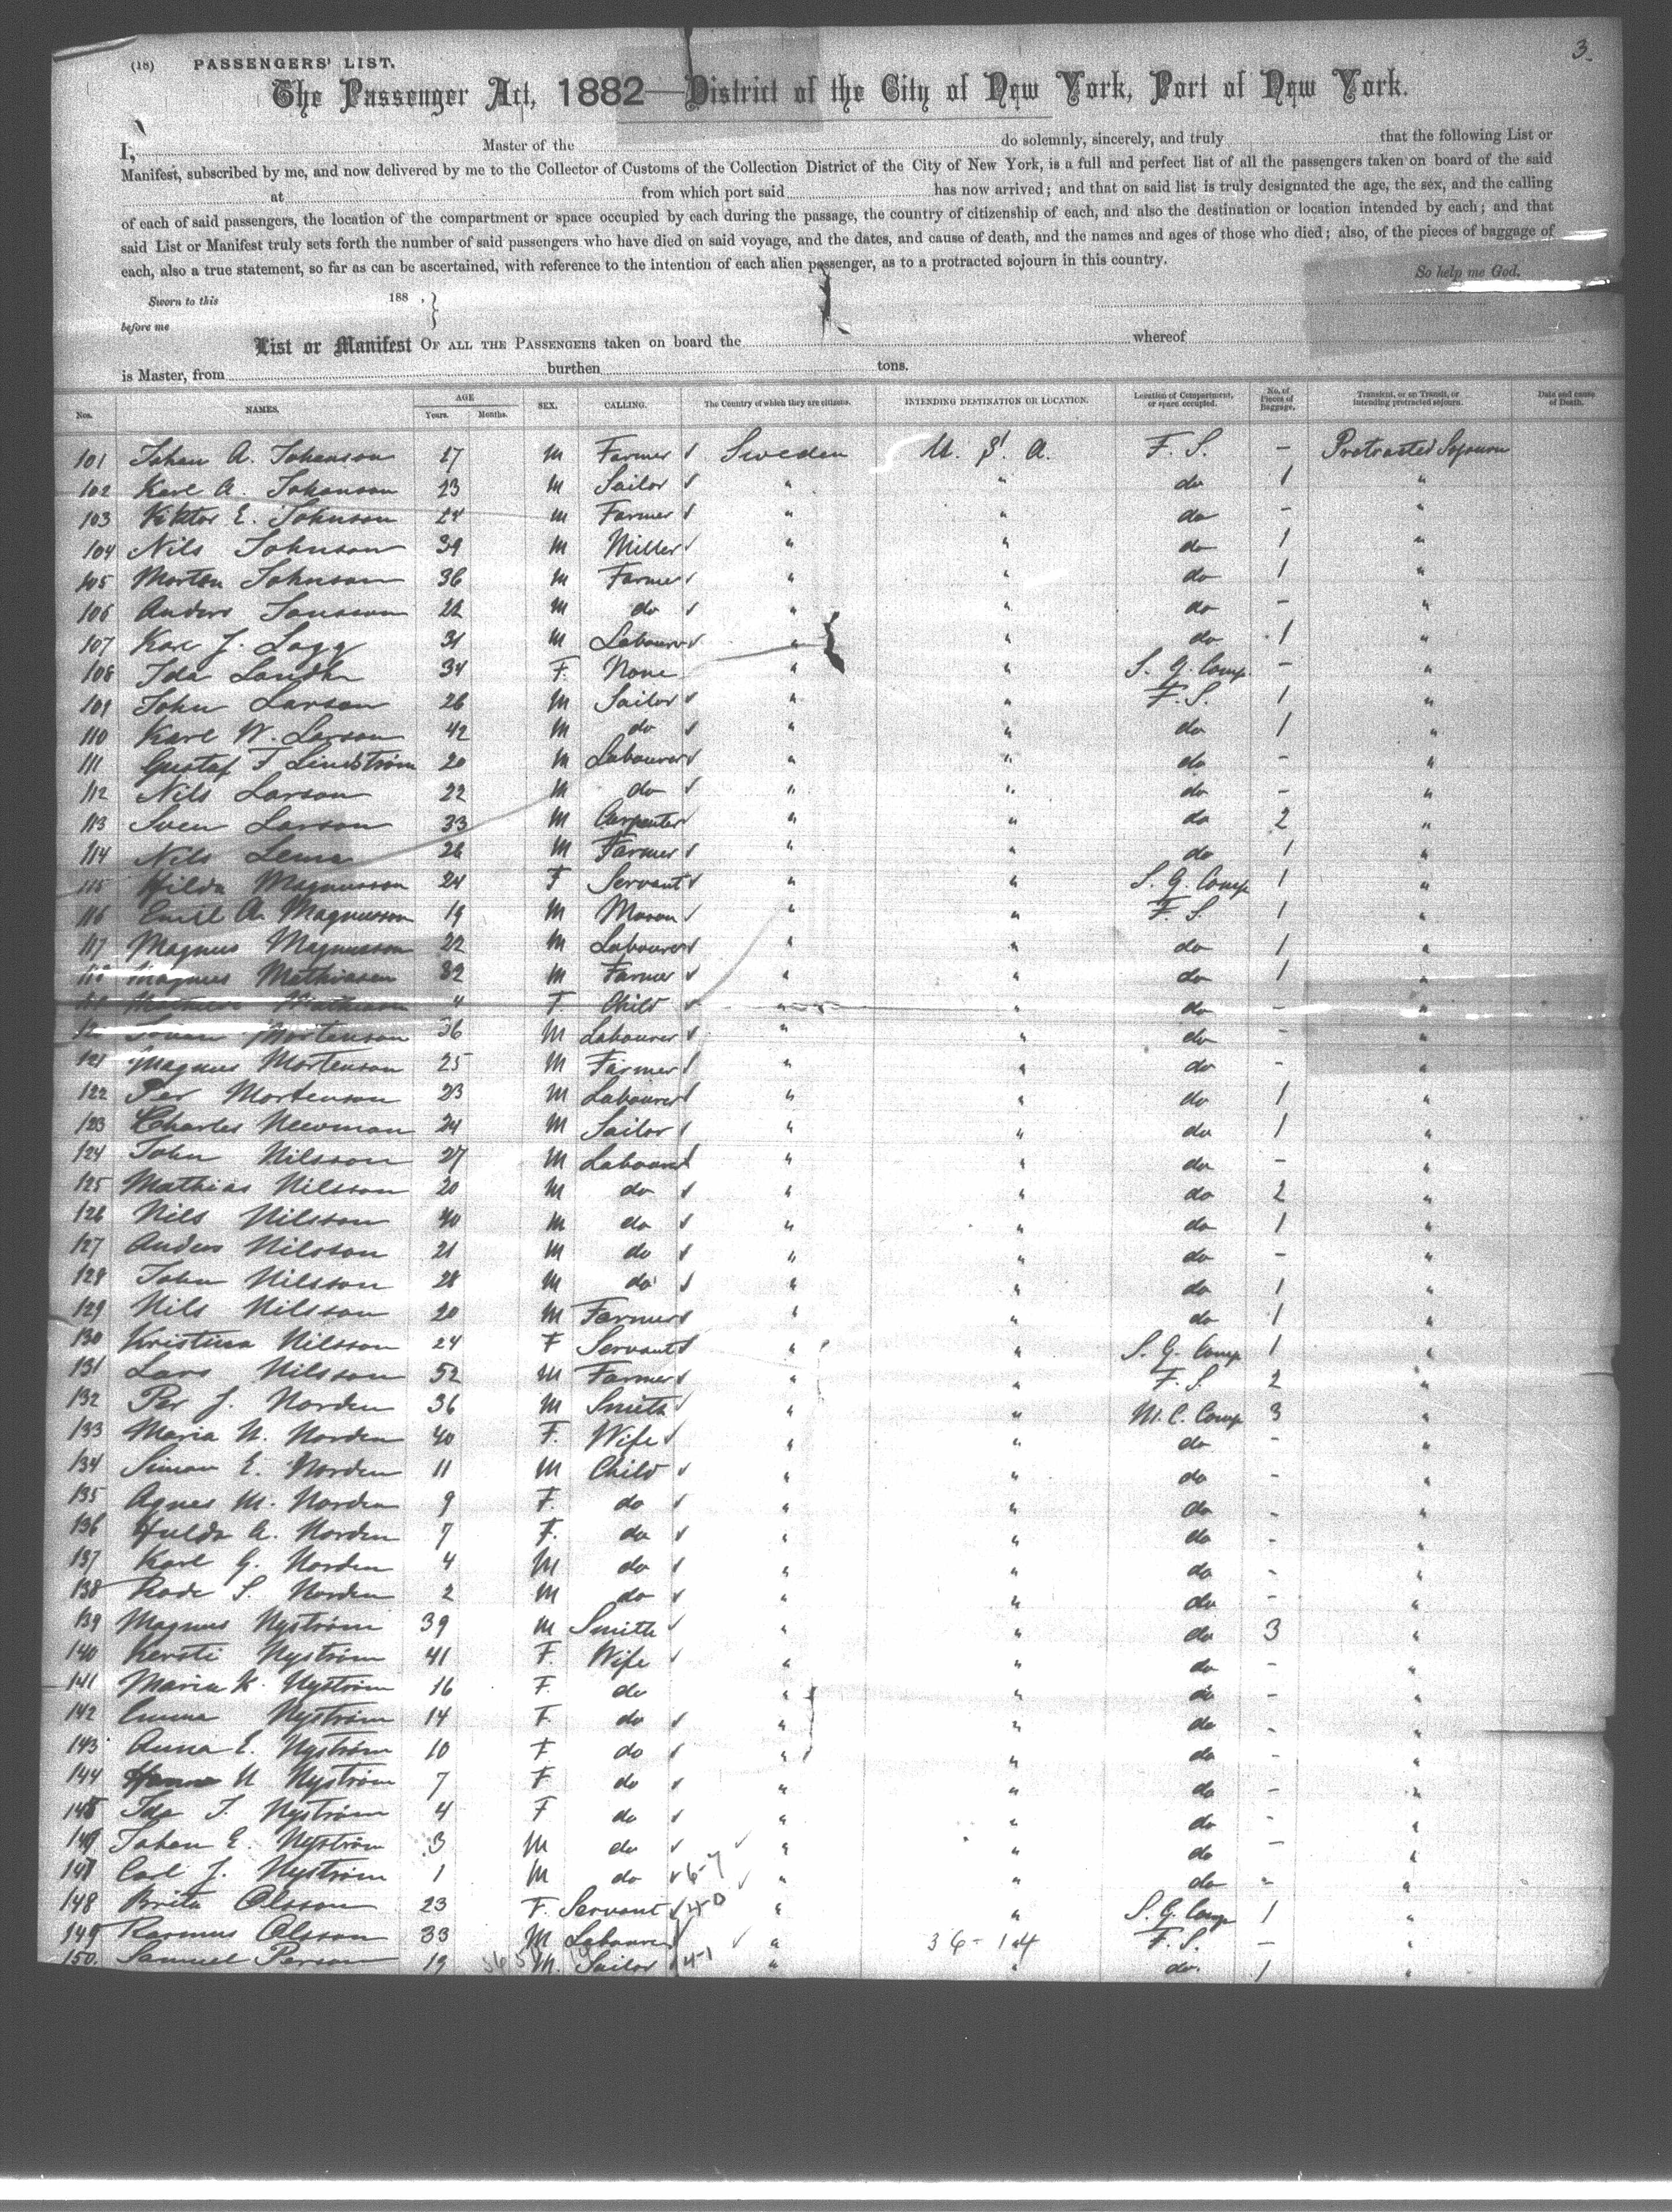 3.
(18) PASSENGERS' LIST.
The Passenger Act, 1882—District of the City of New York, Port of New York.
I, Master of the do solemnly, sincerely, and truly that the following List or
Manifest, subscribed by me, and now delivered by me to the Collector of Customs of the Collection District of the City of New York, is a full and perfect list of all the passengers taken on board of the said
at from which port said has now arrived; and that on said list is truly designated the age, the sex, and the calling
of each of said passengers, the location of the compartment or space occupied by each during the passage, the country of citizenship of each, and also the destination or location intended by each; and that
said List or Manifest truly sets forth the number of said passengers who have died on said voyage, and the dates, and cause of death, and the names and ages of those who died; also, of the pieces of baggage of
each, also a true statement, so far as can be ascertained, with reference to the intention of each alien passenger, as to a protracted sojourn in this country.
So help me God.
Sworn to this 188 .
before me
List or Manifest OF ALL THE PASSENGERS taken on board the whereof
is Master, from burthen tons.
Nos. NAMES. AGE Years. Months. SEX. CALLING. The Country of which they are citizens. INTENDING DESTINATION OR LOCATION. Location of Compartment, or space occupied. No. of Pieces of Baggage. Transient, or on Transit, or intending protracted sojourn. Date and cause of Death.
101 Johan A. Johanson 17 M Farmer Sweden U. S. A. F. S. - Protracted Sojourn
102 Karl A. Johanson 23 M Sailor " " do 1 "
103 Viktor E. Johnson 24 M Farmer " " do - "
104 Nils Johnson 39 M Miller " " do 1 "
105 Morton Johnson 36 M Farmer " " do 1 "
106 Anders Jonsson 22 M do " " do - "
107 Karl J. Lagg 31 M Labourer " " do 1 "
108 Ida 34 F. None " " S. G. Comp. - "
109 John Larson 26 M Sailor " " F. S. 1 "
110 Karl W. Larson 42 M do " " do 1 "
111 Gustaf F Lindström 20 M Labourer " " do - "
112 Nils Larson 22 M do " " do - "
113 Sven Larson 33 M Carpenter " " do 2 "
114 Nils 26 M Farmer " " do 1 "
115 Hilda Magnusson 24 F Servant " " S. G. Comp 1 "
116 Emil A. Magnusson 19 M Mason " " F. S. 1 "
117 Magnus Magnusson 22 M Labourer " " do 1 "
118 Magnus Mathiasen 32 M Farmer " " do 1 "
4 F. Child " do - "
Mortenson 36 M Labourer " " do - "
121 Magnus Mortenson 25 M Farmer " " do - "
122 Per Mortenson 23 M Labourer " " do 1 "
123 Charles Newman 24 M Sailor " " do 1 "
124 John Nilsson 27 M Labourer " " do - "
125 Mathias Nilsson 20 M do " " do 2 "
126 Nils Nilsson 40 M do " " do 1 "
127 Anders Nilsson 21 M do " " do - "
128 John Nilsson 28 M do " " do 1 "
129 Nils Nilsson 20 M Farmer " " do 1 "
130 Kristina Nilsson 24 F Servant " " S. G. Comp 1 "
131 Lars Nilsson 52 M Farmer " " F. S. 2 "
132 Per J. Norden 36 M Smith " " M. C. Comp 3 "
133 Maria N. Norden 40 F. Wife " " do - "
134 Simon E. Norden 11 M Child " " do - "
135 Agnes M. Norden 9 F. do " " do - "
136 Hulda A. Norden 7 F. do " " do - "
137 Karl G. Norden 4 M do " " do - "
138 S. Norden 2 M do " " do - "
139 Magnus Nyström 39 M Smith " " do 3 "
140 Kersti Nyström 41 F. Wife " " do - "
141 Maria K. Nyström 16 F. do " " do - "
142 Emma Nyström 14 F. do " " do - "
143 Anna E. Nyström 10 F do " " do - "
144 N Nyström 7 F do " " do - "
145 Ida T. Nyström 4 F do " " do - "
146 Johan E. Nyström 3 M do " " do - "
147 Carl J. Nyström 1 M do 6-7 " " do " "
148 Brita Olsson 23 F. Servant " " S. G. Comp 1 "
149 Rasmus Olsson 33 M Labourer " 36-144 F. S. - "
150. Samuel Person 19 M. Sailor 4-1 " " do. 1 "